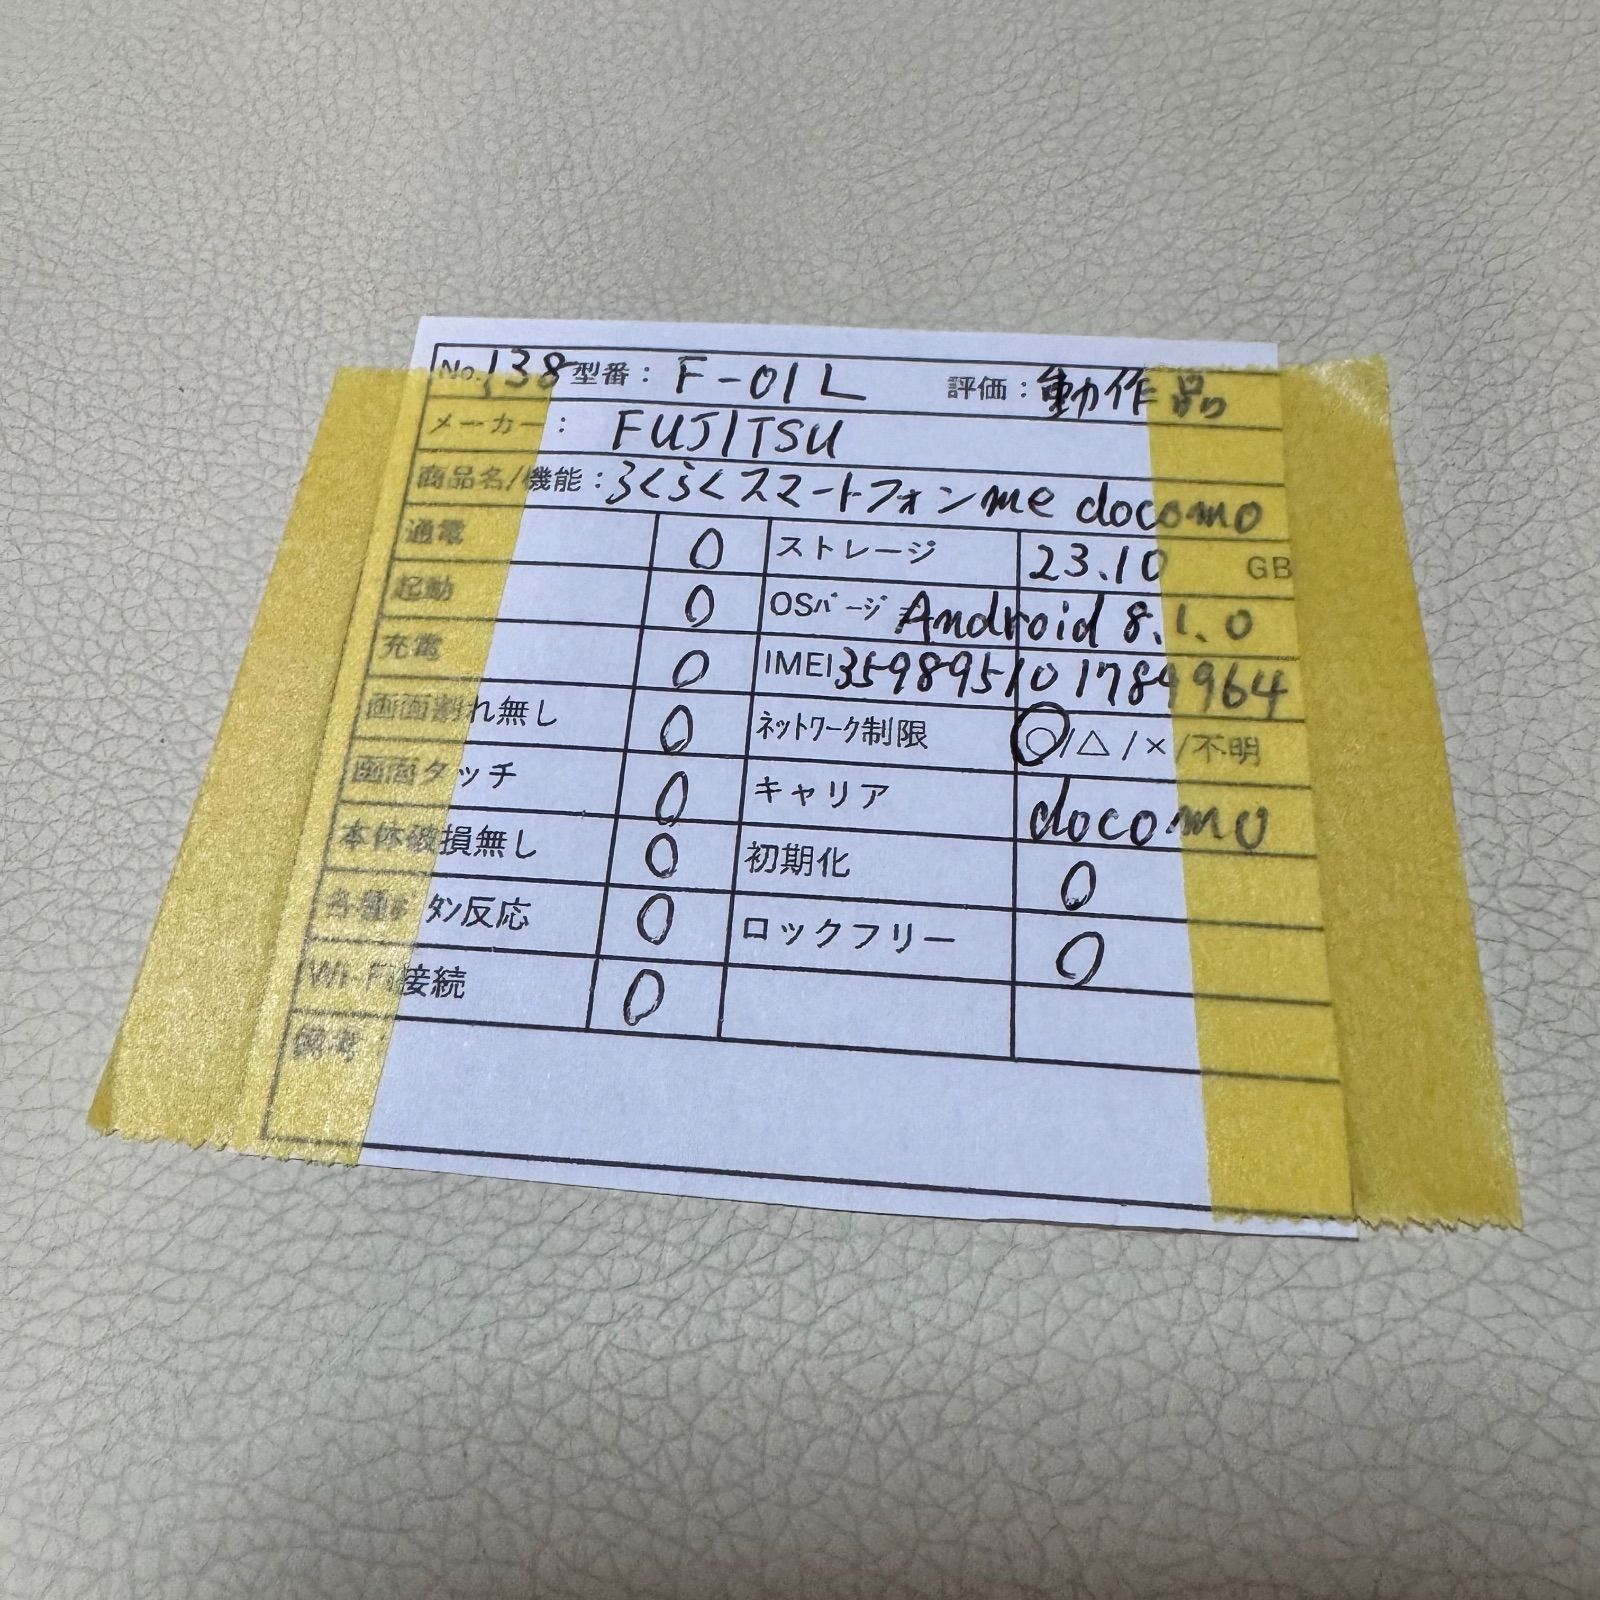 No.138 型番： F-01L 評価：動作品
メーカー： FUJITSU
商品名/機能：らくらくスマートフォンme docomo
通電 ○ ストレージ 23.10 GB
起動 ○ OSバージョ Android 8.1.0
充電 ○ IMEI 359895101784964
画面割れ無し ○ ネットワーク制限 ○/△/×/不明
画面タッチ ○ キャリア docomo
本体破損無し ○ 初期化 ○
各種ボタン反応 ○ ロックフリー ○
Wi-Fi接続 ○
備考